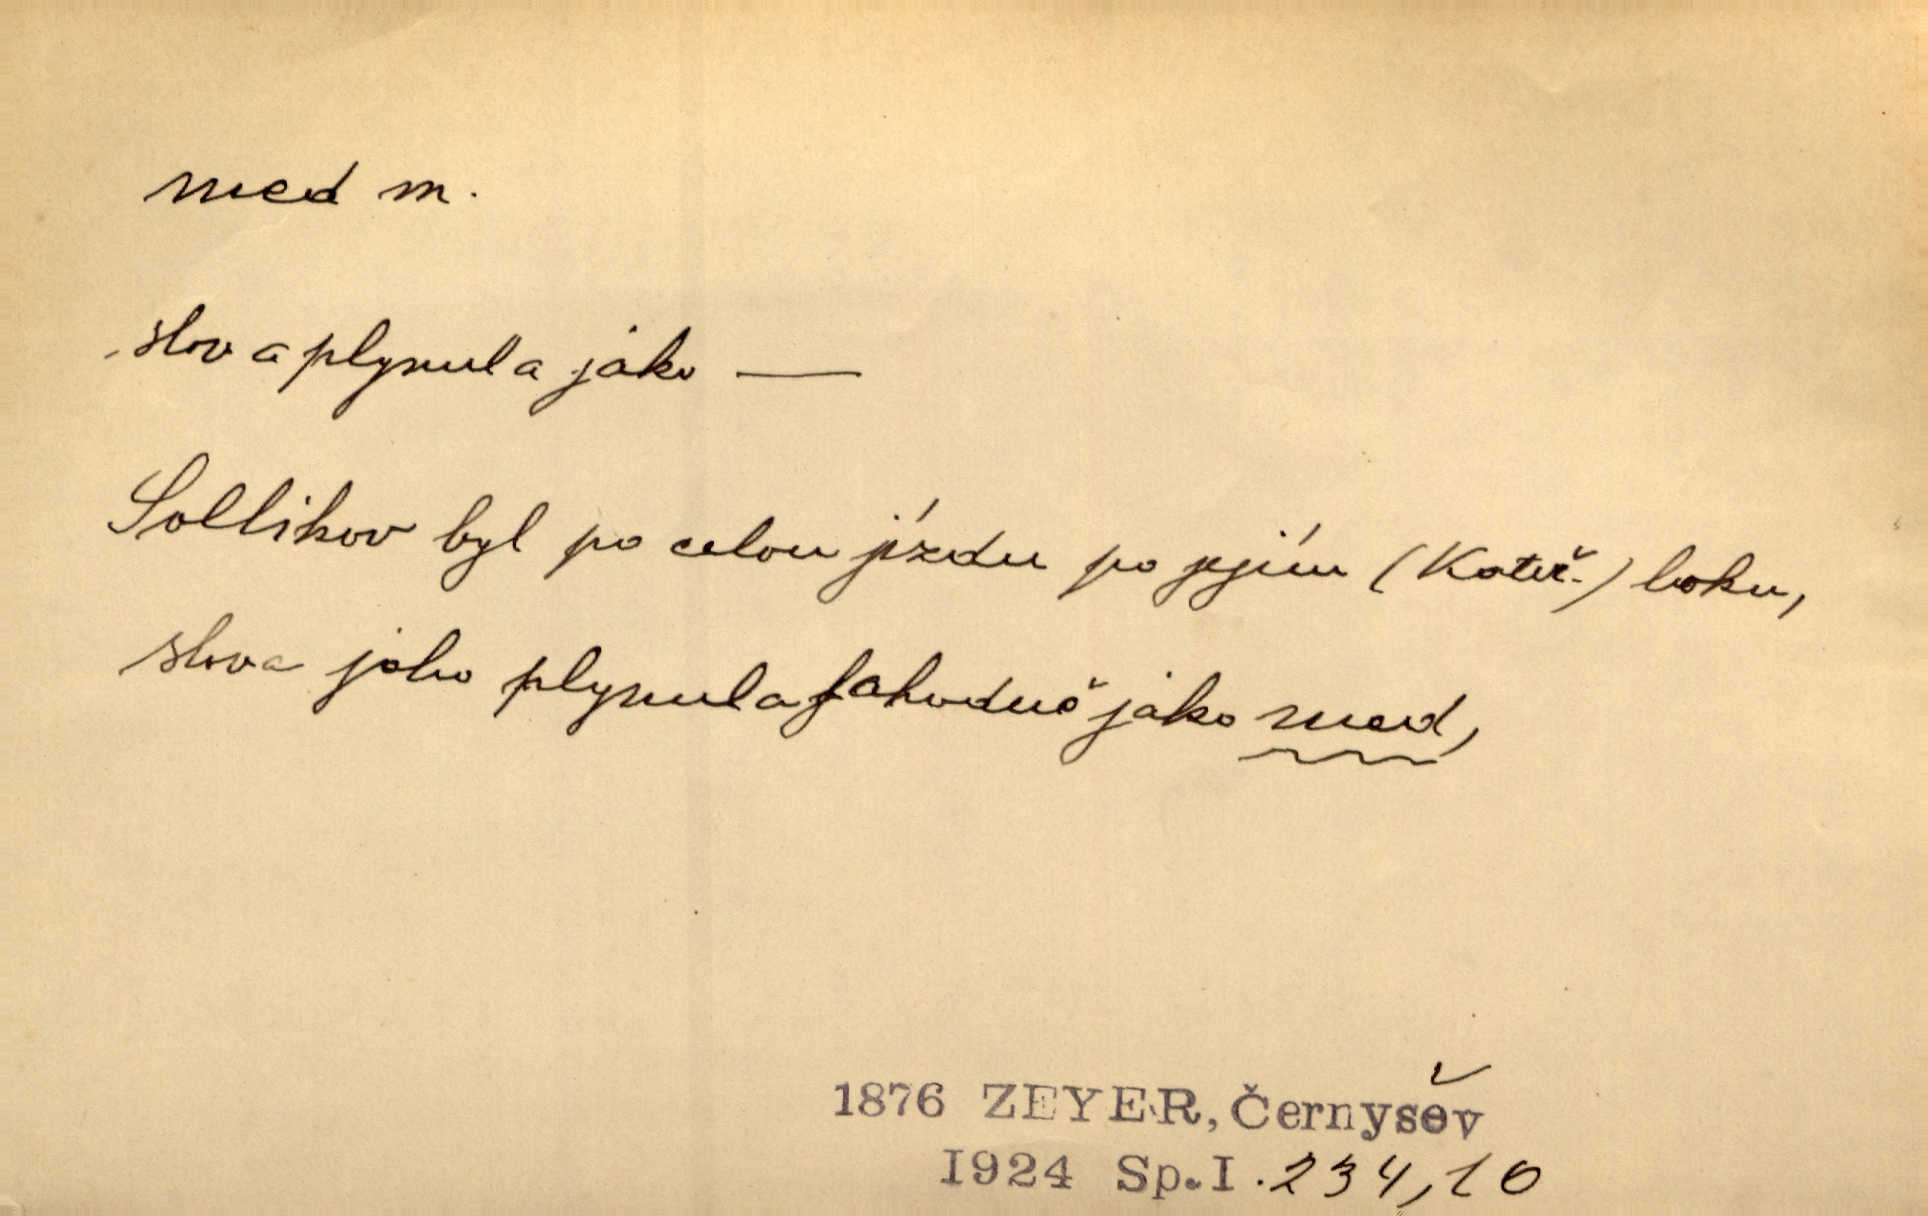 med m.
slova plynula jako —
Soltikov byl po celou jízdu po jejím (Kateř.) boku,
slova jeho plynula lahodně jako med,
1876 ZEYER, Černyšev
1924 Sp.I.234,10